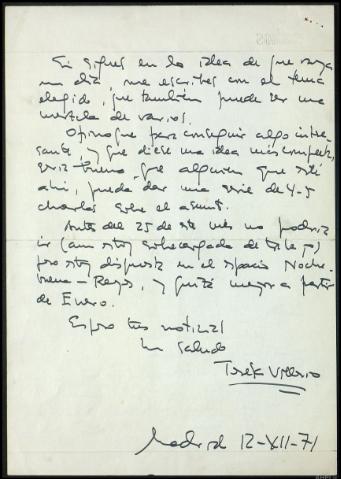 Si sigues en la idea de que vaya
un día, me escribes con el tema
elegido, que también puede ser una
mezcla de varios.
Opino que para conseguir algo intere-
sante, y que diese una idea más completa,
sería bueno que alguien que esté
ahí, pueda dar una serie de 4-5
charlas sobre el asunto.
Antes del 25 de este mes no podría
ir (aun estoy sobrecargada de trabajo)
pero estoy dispuesta en el espacio Noche-
buena - Reyes, y quizá mejor a partir
de Enero.
Espero tus noticias
Un saludo
Madrid 12-XII-71